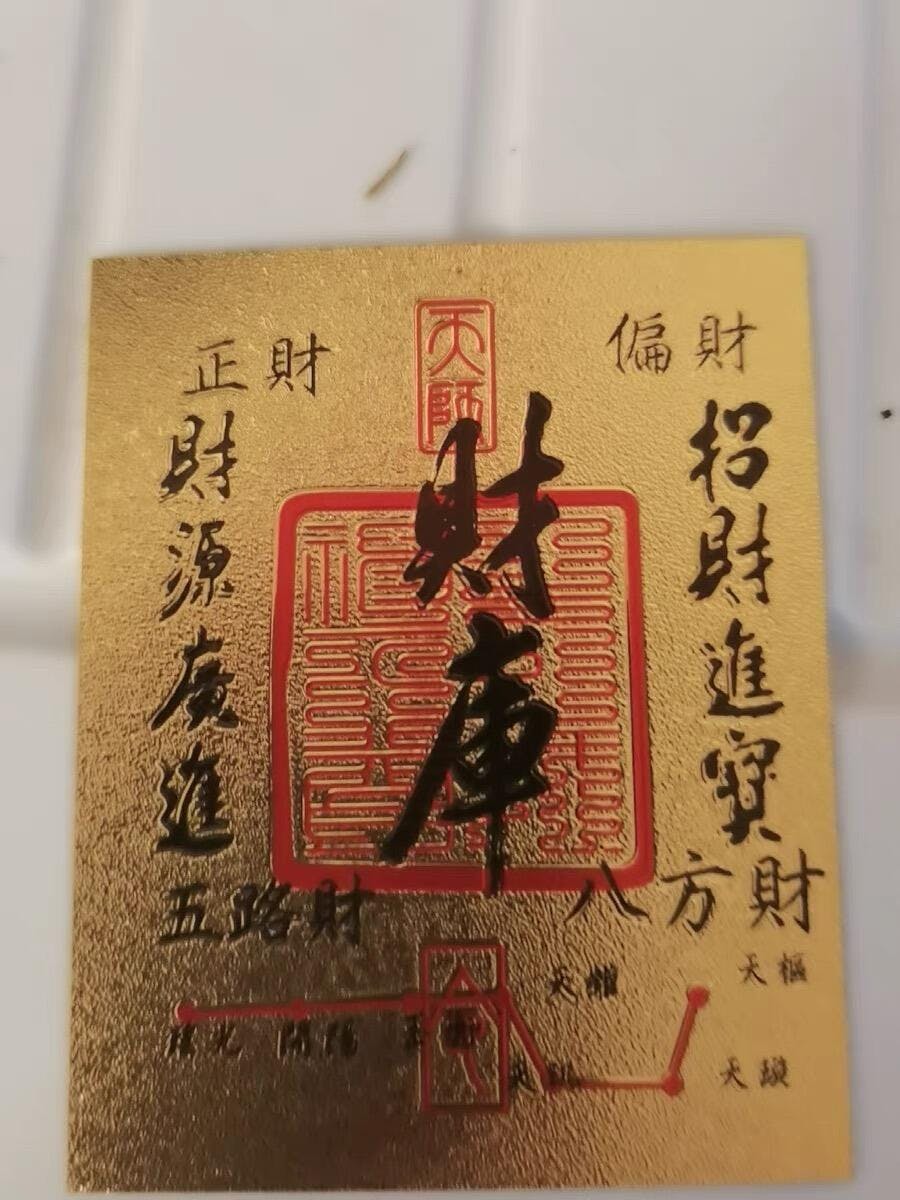 天師
偏財
招財進寶
八方財
財庫
正財
財源廣進
五路財
令
天樞
天璇
天權
玉衡
開陽
瑤光